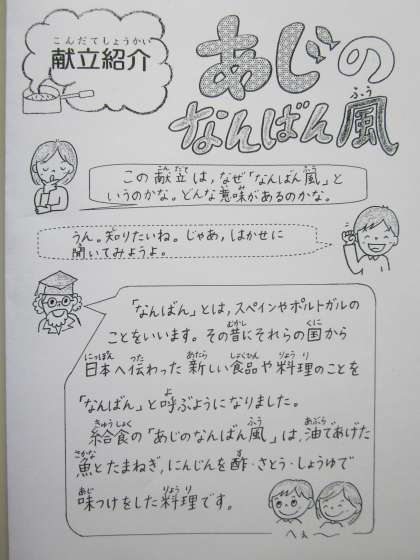 こんだてしょうかい
献立紹介
あじの
なんばん風
ふう
この献立は、なぜ「なんばん風」と
いうのかな。どんな意味があるのかな。
うん。知りたいね。じゃあ、はかせに
聞いてみようよ。
「なんばん」とは、スペインやポルトガルの
ことをいいます。その昔にそれらの国から
日本へ伝わった新しい食品や料理のことを
「なんばん」と呼ぶようになりました。
給食の「あじのなんばん風」は、油であげた
魚とたまねぎ、にんじんを酢・さとう・しょうゆで
味つけをした料理です。
へぇ〜